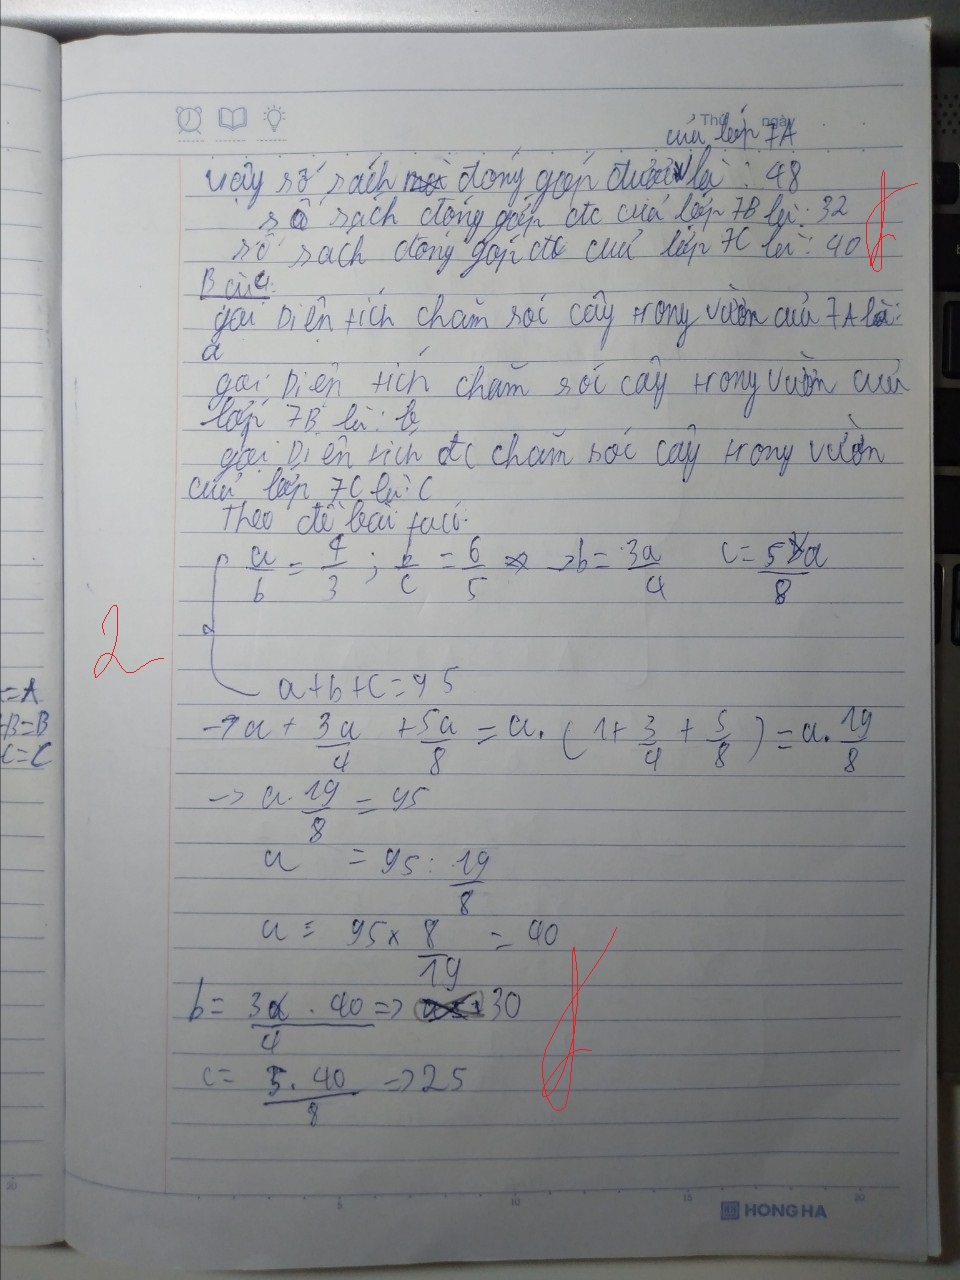 Thứ ngày
của lớp 7A
Vậy số sách đóng góp được là : 48
số sách đóng góp đc của lớp 7B là: 32
số sách đóng góp đc của lớp 7C là: 40
Bài 4:
gọi Diện tích chăm sóc cây trong vườn của 7A là:
a
gọi Diện tích chăm sóc cây trong vườn của
lớp 7B là: b
gọi Diện tích đc chăm sóc cây trong vườn
của lớp 7C là: C
Theo đề bài ta có:
a/b = 4/3 ; b/c = 6/5 → b = 3a/4 c = 5a/8
2
a+b+c=95
→ a + 3a/4 + 5a/8 = a. (1 + 3/4 + 5/8) = a. 19/8
→ a. 19/8 = 95
a = 95 : 19/8
a = 95 x 8/19 = 40
b = 3 . 40/4 => 30
c = 5. 40/8 => 25
=A
+B=B
C=C
20
5 10 15 20
HONG HA